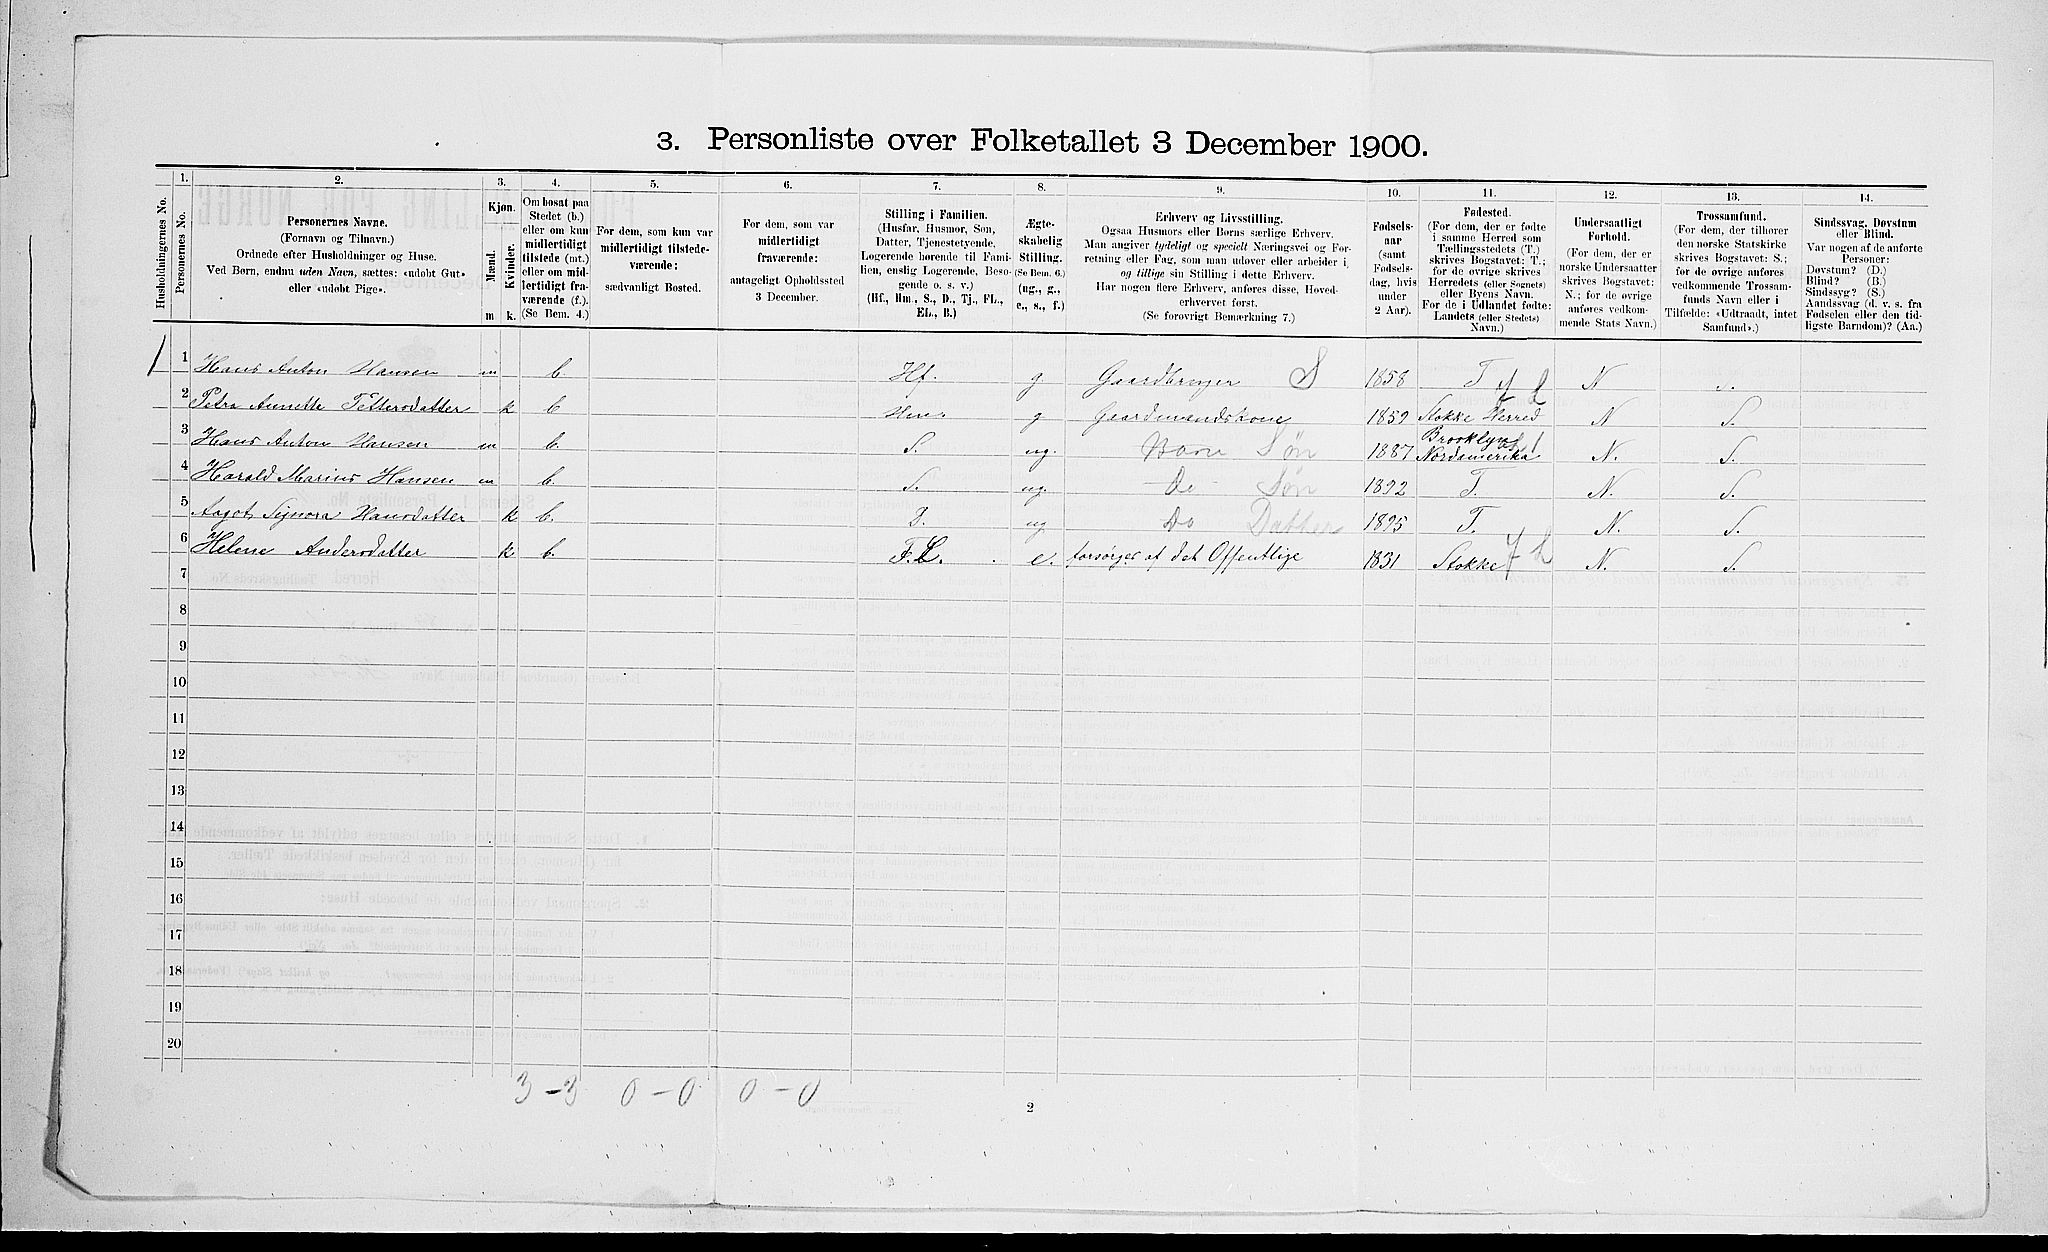 3. Personliste over Folketallet 3 December 1900.
Husholdningernes No.
1.
Personernes No.
2.
Personernes Navne.
(Fornavn og Tilnavn.)
Ordnede efter Husholdninger og Huse.
Ved Børn, endnu uden Navn, sættes: «udøbt Gut»
eller «udøbt Pige».
3.
Kjøn.
Mænd.
Kvinder.
m
k.
4.
Om bosat paa
Stedet (b.)
eller om kun
midlertidigt
tilstede (mt.)
eller om mid-
lertidigt fra-
værende (f.).
(Se Bem. 4.)
5.
For dem, som kun var
midlertidigt tilstede-
værende:
sædvanligt Bosted.
6.
For dem, som var
midlertidigt
fraværende:
antageligt Opholdssted
3 December.
7.
Stilling i Familien.
(Husfar, Husmor, Søn,
Datter, Tjenestetyende,
Logerende hørende til Fami-
lien, enslig Logerende, Besø-
gende o. s. v.)
(Hf., Hm., S., D., Tj., FL.,
EL., B.)
8.
Ægte-
skabelig
Stilling.
(Se Bem. 6.)
(ug., g.,
e., s., f.)
9.
Erhverv og Livsstilling.
Ogsaa Husmors eller Børns særlige Erhverv.
Man angiver tydeligt og specielt Næringsvei og For-
retning eller Fag, som man udøver eller arbeider i,
og tillige sin Stilling i dette Erhverv.
Har nogen flere Erhverv, anføres disse, Hoved-
erhvervet først.
(Se forøvrigt Bemærkning 7.)
10.
Fødsels-
aar
(samt
Fødsels-
dag, hvis
under
2 Aar).
11.
Fødested.
(For dem, der er fødte
i samme Herred som
Tællingsstedets (T.)
skrives Bogstavet: T.;
for de øvrige skrives
Herredets (eller Sognets)
eller Byens Navn.
For de i Udlandet fødte:
Landets (eller Stedets)
Navn.)
12.
Undersaatligt
Forhold.
(For dem, der er
norske Undersaatter
skrives Bogstavet:
N.; for de øvrige
anføres vedkom-
mende Stats Navn.)
13.
Trossamfund.
(For dem, der tilhører
den norske Statskirke
skrives Bogstavet: S.;
for de øvrige anføres
vedkommende Trossam-
funds Navn eller i
Tilfælde: «Udtraadt, intet
Samfund».)
14.
Sindssvag, Døvstum
eller Blind.
Var nogen af de anførte
Personer:
Døvstum? (D.)
Blind? (B.)
Sindssyg? (S.)
Aandssvag (d. v. s. fra
Fødselen eller den tid-
ligste Barndom)? (Aa.)
1 Hans Anton Hansen m b. Hf. g Gaardbruger S 1858 T N s.
2 Petra Annette Pettersdatter k b g Gaardmandskone 1859 Stokke Herred N S.
3 Hans Anton Hansen m b. S. ug. Barn Søn 1887 Brooklyn
Nordamerika N. S.
4 Harald Marius Hansen m b. S. ug. Do Søn 1892 T. N. S.
5 Aagot Signora Hansdatter k b. D. ug Do Datter 1895 T. N. S.
6 Helene Andersdatter k b. F.L. e. forsørges af det Offentlige 1831 Stokke N. S.
7
8
9
10
11
12
13
14
15
16
17
18
19
20
3 - 3 0 - 0 0 - 0
2